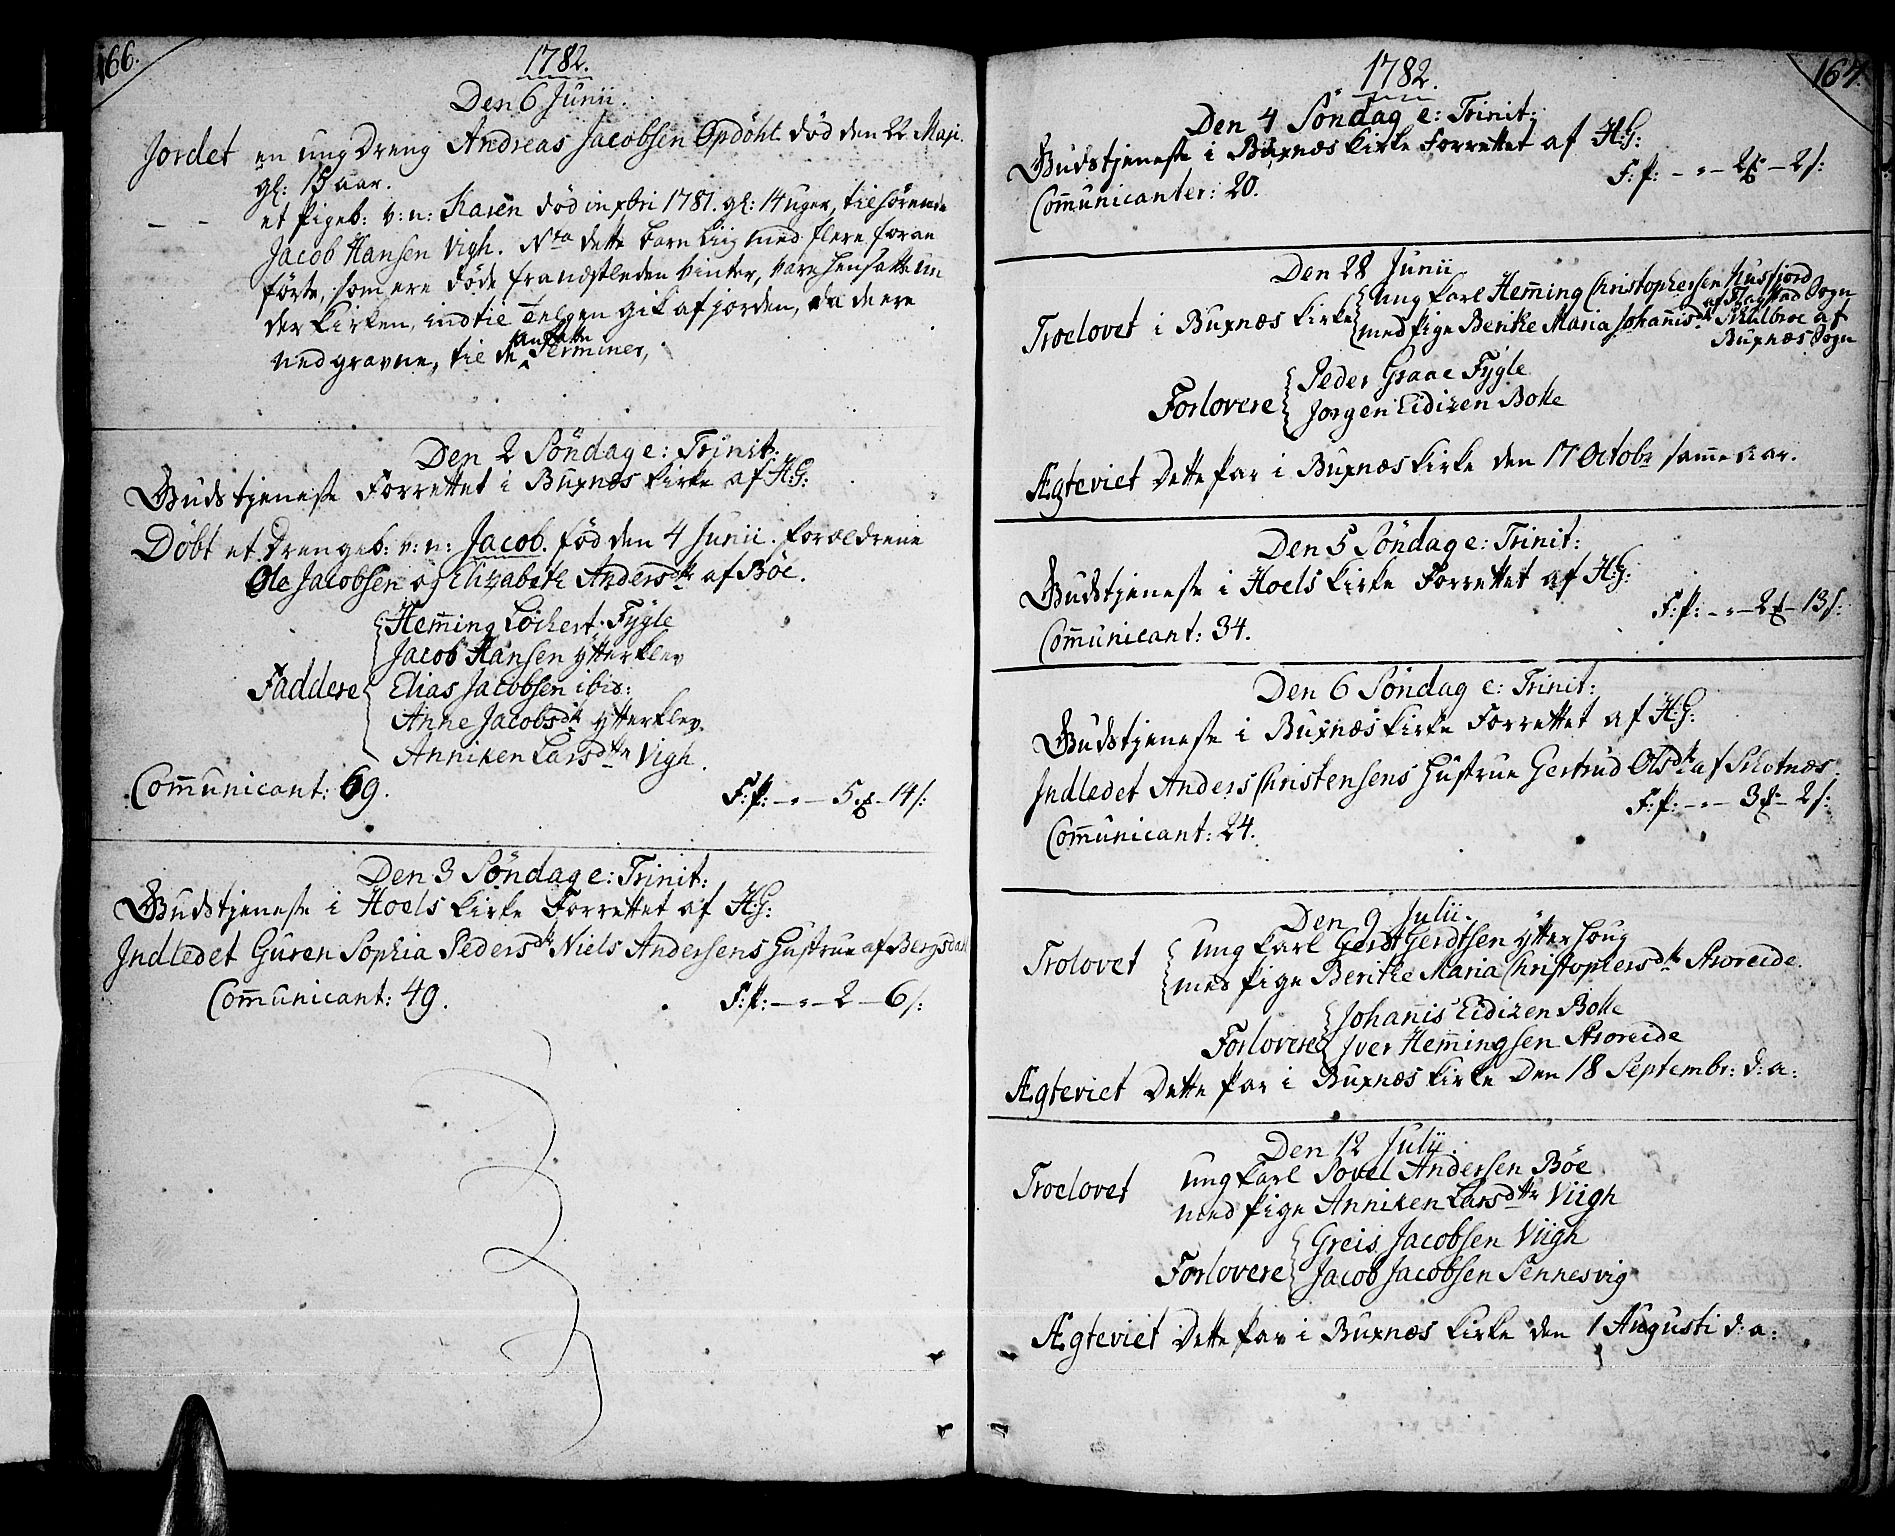 166.
1782.
Den 6 Junii.
Jordet en ung Dreng Andreas Jacobsen Opdöhl død den 22 Maji.
gl: 15 aar.
— — et Pigeb: v: n: Karen død in xbri 1781. gl: 14 uger, tilhørende
Jacob Hansen Vigh. Nta dette barn liig med flere foran
förte, som ere døde fra næstleden vinter, vare hensatte un
der kirken, indtil Telgen gik af jorden, da de ere
ansatte
nedgravne, til de Terminer,
Den 2 Söndag e: Trinit:
Gudstjeneste Forrettet i Buxnæs kirke af H:G:
Döbt et drengeb: v: n: Jacob. fød den 4 Junii. foroeldrene
Ole Jacobsen og Elizabeth Andersdtr af Böe.
Hem̄ing Löchert Fygle
Jacob Hansen ytterklev
Faddere Elias Jacobsen ibid:
Anne Jacobsdtr ytterklev
Anniken Larsdttr Vigh.
Com̄unicant: 69. F: P: — 5 — 14 s:
Den 3 Söndag e: Trinit:
Gudstjeneste i Hoels kirke Forrettet af H:G:
Indledet Guren Sophia Pedersdtr Niels Andersens Hustrue af Bergsdal
Com̄unicant: 49. F: P: — 2 — 6 s:
167.
1782.
Den 4 Söndag e: Trinit:
Gudstjeneste i Buxnæs kirke Forrettet af H:G:
F: P: — 2 — 2 s:
Com̄unicanter: 20.
Den 28 Junii
ung karl Hem̄ing Christophersen Nusfjord
af Flagstad Sogn
Troelovet i Buxnæs kirke med Pige Beritke Maria Johan̄isdtr Skulbroe af
Buxnæs Sogn
Forlovere Peder Graae Fygle
Jorgen Eidizen Bolle
Ægteviet Dette Par i Buxnæs kirke den 17 Octobr sam̄e aar.
Den 5 Söndag e: Trinit:
Gudstjeneste i Hoels kirke Forrettet af H:G:
F: P: — 2 — 13 s:
Com̄unicant: 34.
Den 6 Söndag e: Trinit:
Gudstjeneste i Buxnæs kirke Forrettet af H:G:
Indledet Anders Christensens Hustrue Gertrud Olsdtr af Skotnæs
F: P: — 3 — 2 s:
Com̄unicant: 24.
Den 9 Julii.
Trolovet ung karl Gerdt Gerdtsen ytterhoug
med Pige Beritke Maria Christophersdtr Storeide.
Forlovere Johan̄is Eidizen Bolle
Iver Hem̄ingsen Storeide
Ægteviet Dette Par i Buxnæs kirke den 18 Septembr: d: a:
Den 12 Julii.
Troelovet ung karl Povel Andersen Böe
med Pige Anniken Larsdttr Viigh
Forlovere Greis Jacobsen Viigh
Jacob Jacobsen Sennesvig
Ægteviet Dette Par i Buxnæs kirke den 1 Augusti d: a: